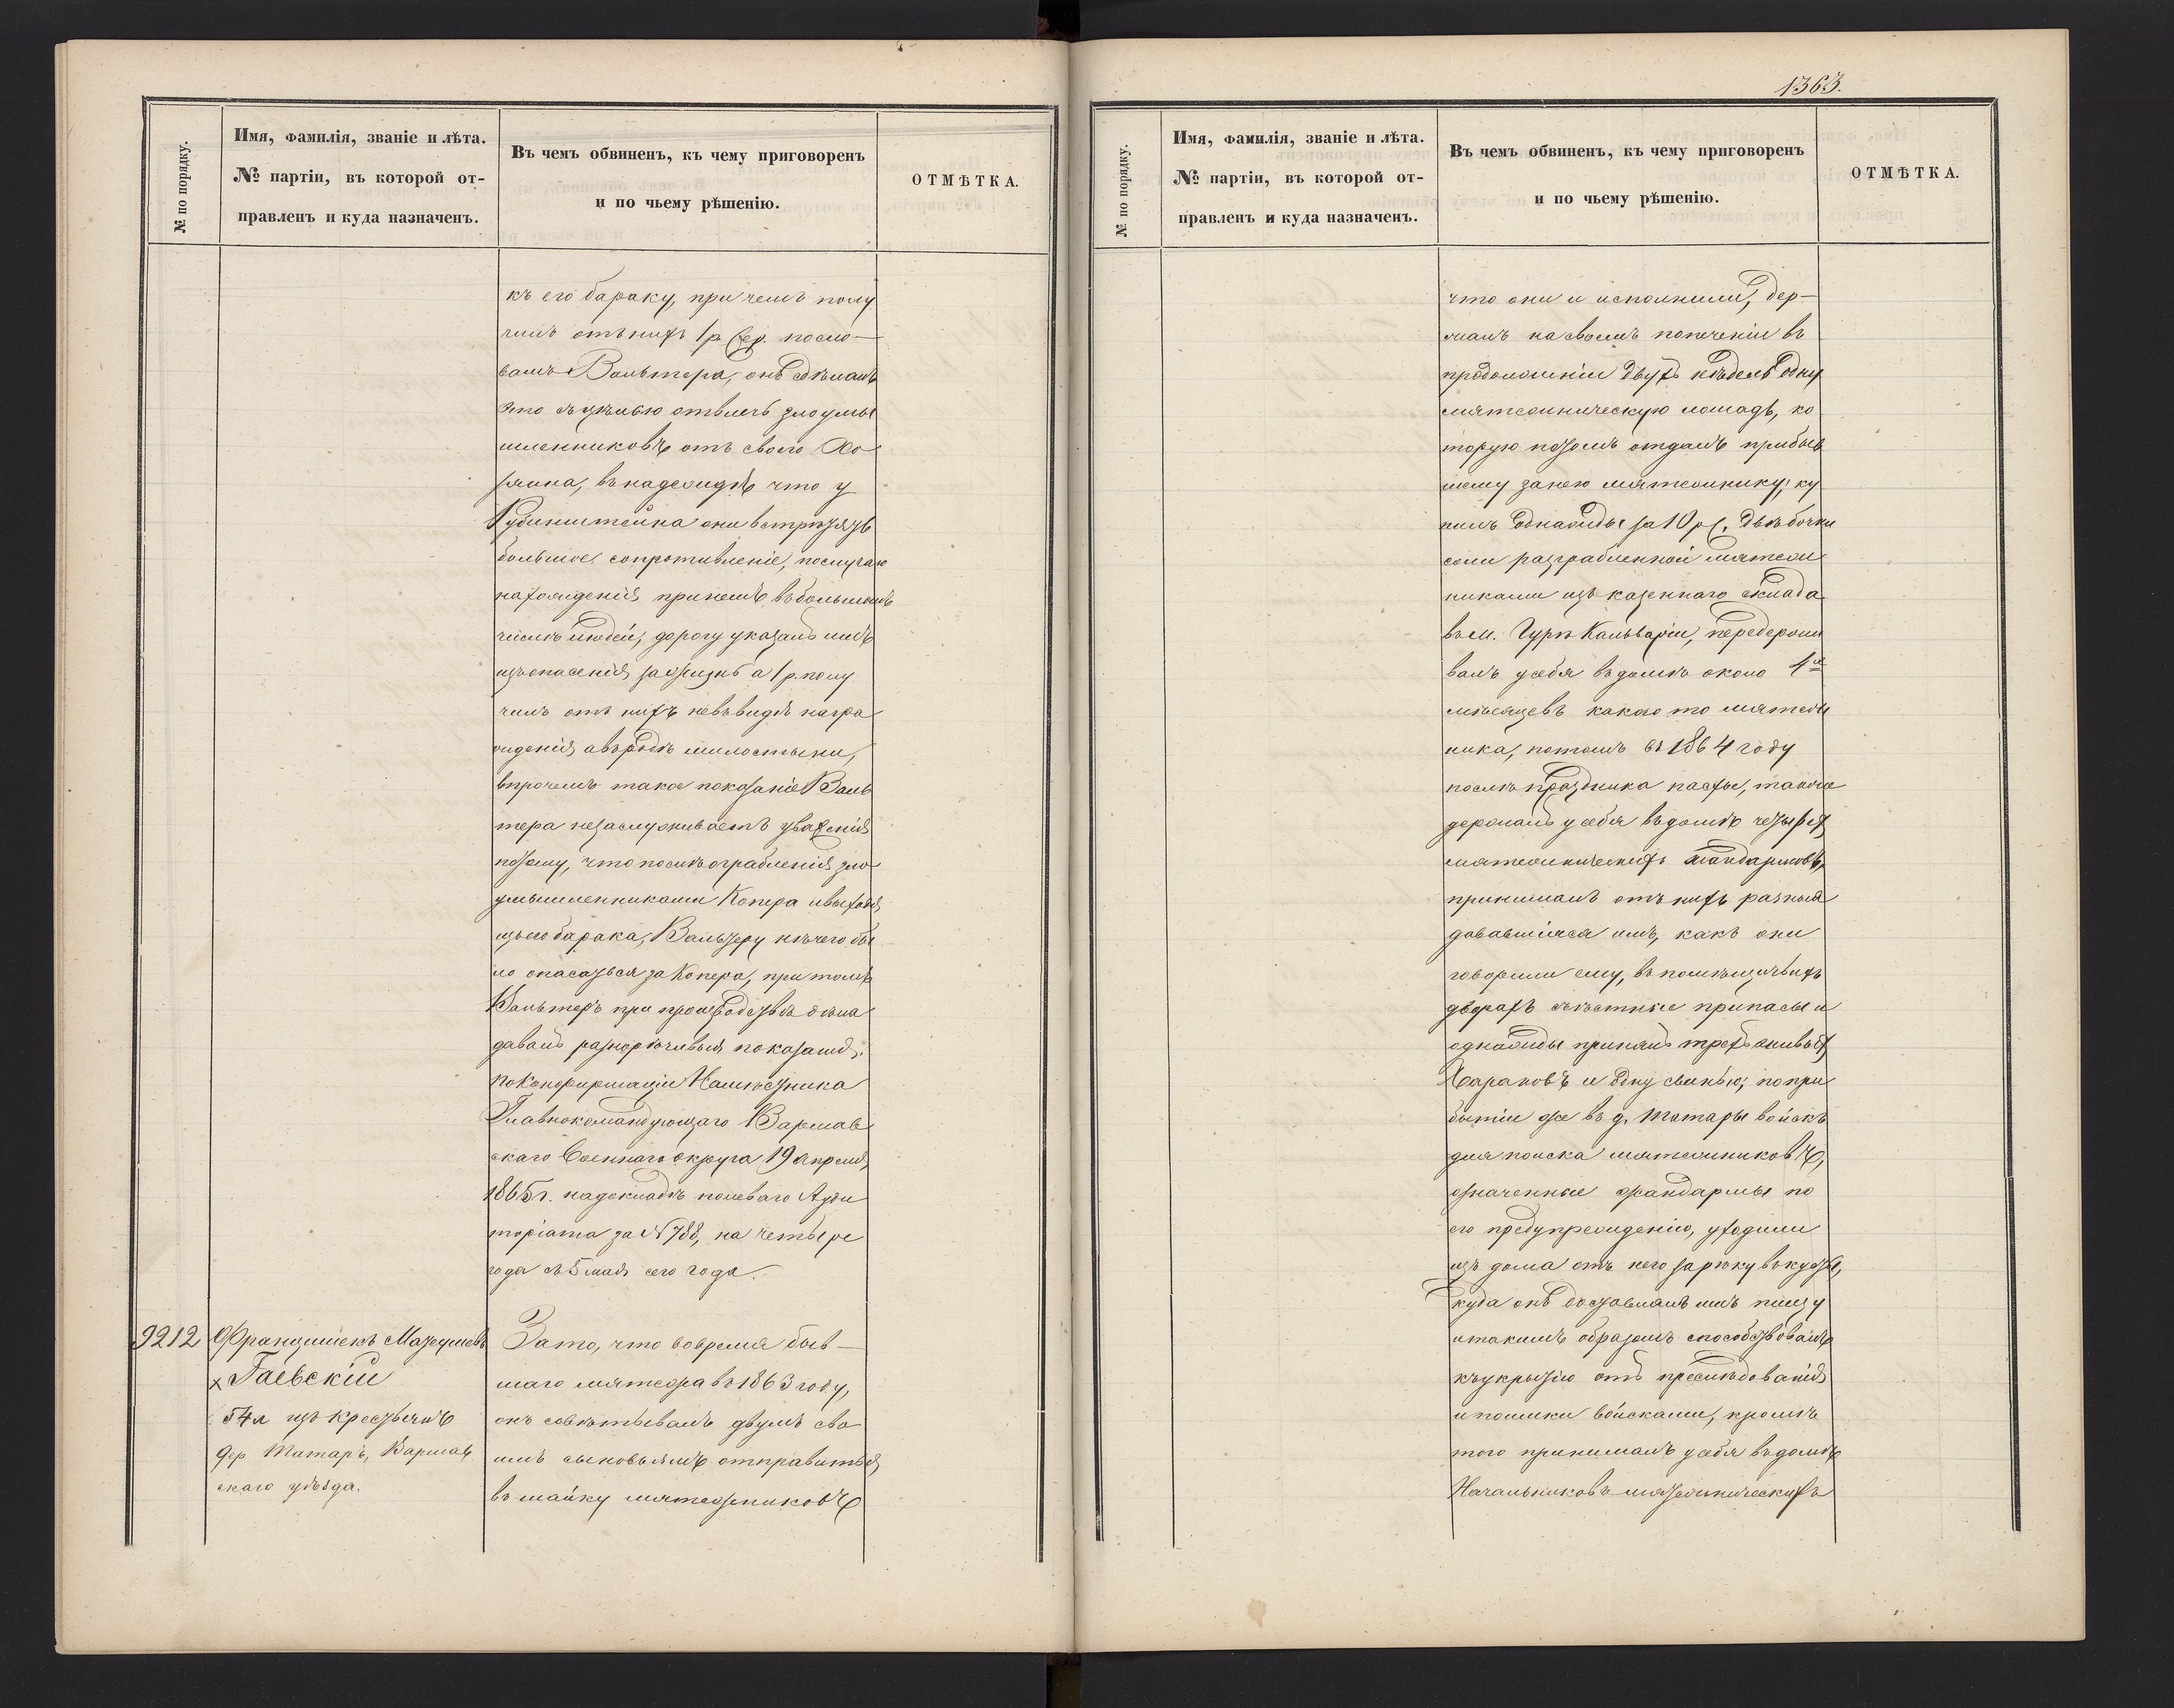 № по порядку.
Имя, фамилія, званіе и лѣта.
№ партіи, въ которой от-
правленъ и куда назначенъ.
Въ чемъ обвиненъ, къ чему приговоренъ
и по чьему рѣшенію.
ОТМѢТКА.
къ его бараку, при чемъ полу
чилъ отъ нихъ 1 р. сер. по сло-
вамъ Вальтера, онъ сдѣлалъ
это съ цѣлью отвлечь злоумы
шленниковъ отъ своего хо
зяина, въ надеждѣ что у
Рубинштейна они встрѣтятъ
большое сопротивленіе, по случаю
нахожденія при немъ въ большомъ
числѣ людей, дорогу указалъ имъ
изъ опасенія за жизнь а 1 р. полу
чилъ отъ нихъ не въ видѣ награ
жденія а въ родѣ милостыни,
впрочемъ такое показаніе Валь
тера незаслуживаетъ уваженія
потому, что послѣ ограбленія зло
умышленниками Копера и выходя
изъ его барака, Вальтеру нѣчего бы
ло опасаться за Копера, при томъ
Вальтеръ при производствѣ дѣла
давалъ разнорѣчивыя показанія.
по конфирмаціи Намѣстника
Главнокомандующаго Варшав
скаго Военнаго округа 19 Апрѣля
1865 г. на докладѣ полеваго Ауди
торіата за № 788, на четыре
года съ 5 мая сего года.
9212
Францишекъ Матеушевъ
× Гаевскій
54 л изъ крестьянъ
дер Татаръ, Варшав
скаго уѣзда.
За то, что во время быв-
шаго мятежа въ 1863 году,
онъ совѣтывалъ двумъ сво
имъ сыновьямъ отправиться
въ шайку мятежниковъ
1363.
№ по порядку.
Имя, фамилія, званіе и лѣта.
№ партіи, въ которой от-
правленъ и куда назначенъ.
Въ чемъ обвиненъ, къ чему приговоренъ
и по чьему рѣшенію.
ОТМѢТКА.
что они и исполнили, дер-
жалъ на своемъ попеченіи въ
продолженіи двухъ недѣль одну
мятежническую лошадь, ко
торую потомъ отдалъ прибыв
шему за нею мятежнику; ку
пилъ однажды за 10 р с. двѣ бочки
соли разграбленной мятеж
никами изъ казеннаго склада
въ м. Гурѣ Кальваріи, передержи
валъ у себя въ домѣ около 4х
мѣсяцевъ какого то мятеж
ника, потомъ въ 1864 году
послѣ праздника пасхи, также
держалъ у себя въ домѣ четырехъ
мятежническихъ жандармовъ,
принималъ отъ нихъ разныя
дававшіяся имъ, какъ они
говорили ему, въ помѣщичьихъ
дворахъ съѣстные припасы и
однажды принялъ трехъ живыхъ
барановъ и одну свинью; по при
бытіи же въ д. Татары войскъ
для поиска мятежниковъ,
означенные жандармы по
его предупрежденію, уходили
изъ дома отъ него за рѣку въ кусты,
куда онъ доставлялъ имъ пищу
и такимъ образомъ способствовалъ
къ укрытію отъ преслѣдованія
и поимки войсками, кромѣ
того принималъ у себя въ домѣ
Начальниковъ мятежническихъ